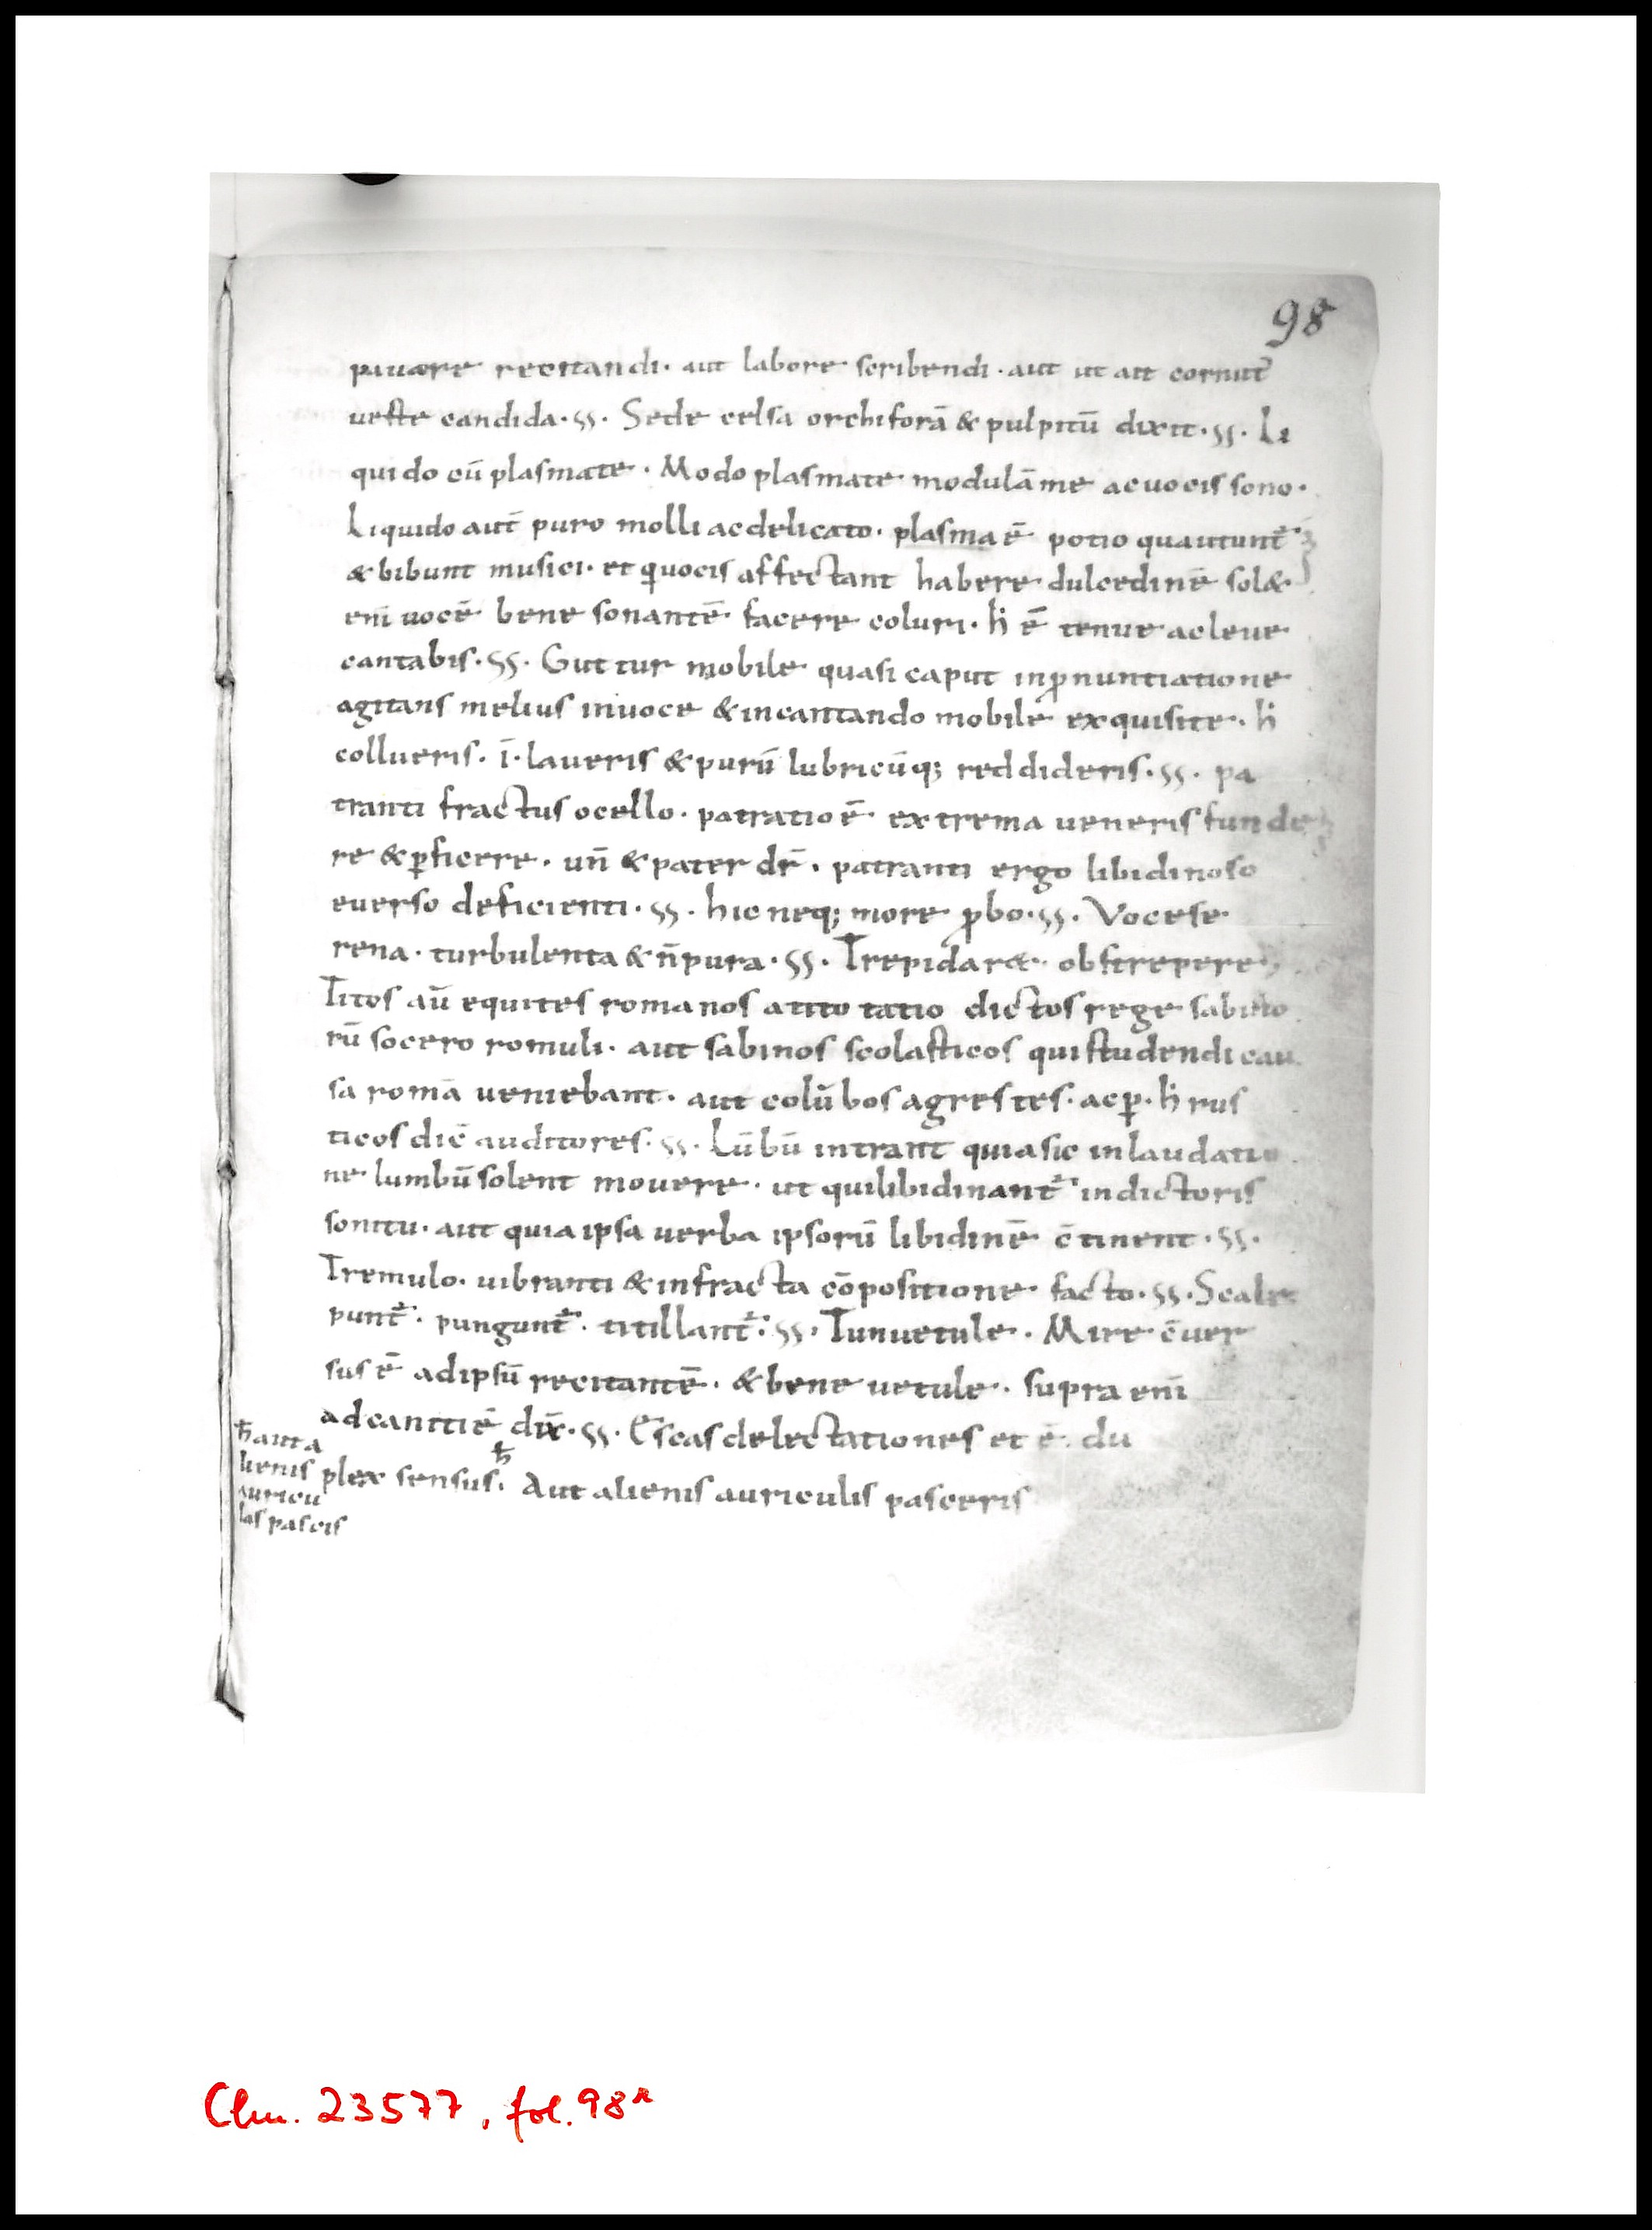 98
pauore recitandi · aut labore scribendi · aut ut ait cornut᷒
ueste candida · ss · Sede celsa orchiforā & pulpitū dixit · ss · Li
quido cū plasmate · Modo plasmate modulāme ac uocis sono ·
Liquido aut̄ puro molli ac delicato · plasma ē potio qua utunt᷒
& bibunt musici · et qui uocis affectant habere dulcedinē sol&
eni uocē bene sonantē facere coluri · h̄ ē tenue ac leue
cantabis · ss · Guttur mobile quasi caput in ꝓnuntiatione
agitans melius in uoce & in cantando mobile exquisite · h̄
collueris · i̅ · laueris & purū lubricūq; reddideris · ss · pa
tranti fractus ocello · patratio ē extrema ueneris funde
re & ꝑficere · un̄ & pater dr̄ · patranti ergo libidinoso
euerso deficienti · ss · hic neq; more ꝓbo · ss · Voce se
rena · turbulenta & n̄ pura · ss · Trepidare obstrepere
Titos aū equites romanos a tito tatio dictos rege sabino
rū socero romuli · aut sabinos scolasticos qui studendi cau
sa romā ueniebant · aut colūbos agrestes · ac ꝑ · h̄ rus
ticos dic̄ auditores · ss · Lūbū intrant quia sic in laudatio
ne lumbū solent mouere · ut qui libidinant᷒ in dictoris
sonitu · aut quia ipsa uerba ipsorū libidinē c̄tinent · ss ·
Tremulo · uibranti & infracta cōpositione facto · ss · Scalp
punt᷒ · pungunt᷒ · titillant᷒ · ss · Tun uetule · Mire c̄uer
sus ē ad ipsū recitantē · & bene uetule · supra eni
ad canitiē dix̄ · ss · Escas delectationes et ē du
plex sensus · h̄ Aut alienis auriculis pasceris
h̄ aut a
lienis
auricu
las pascis
Clm. 23577, fol. 98r